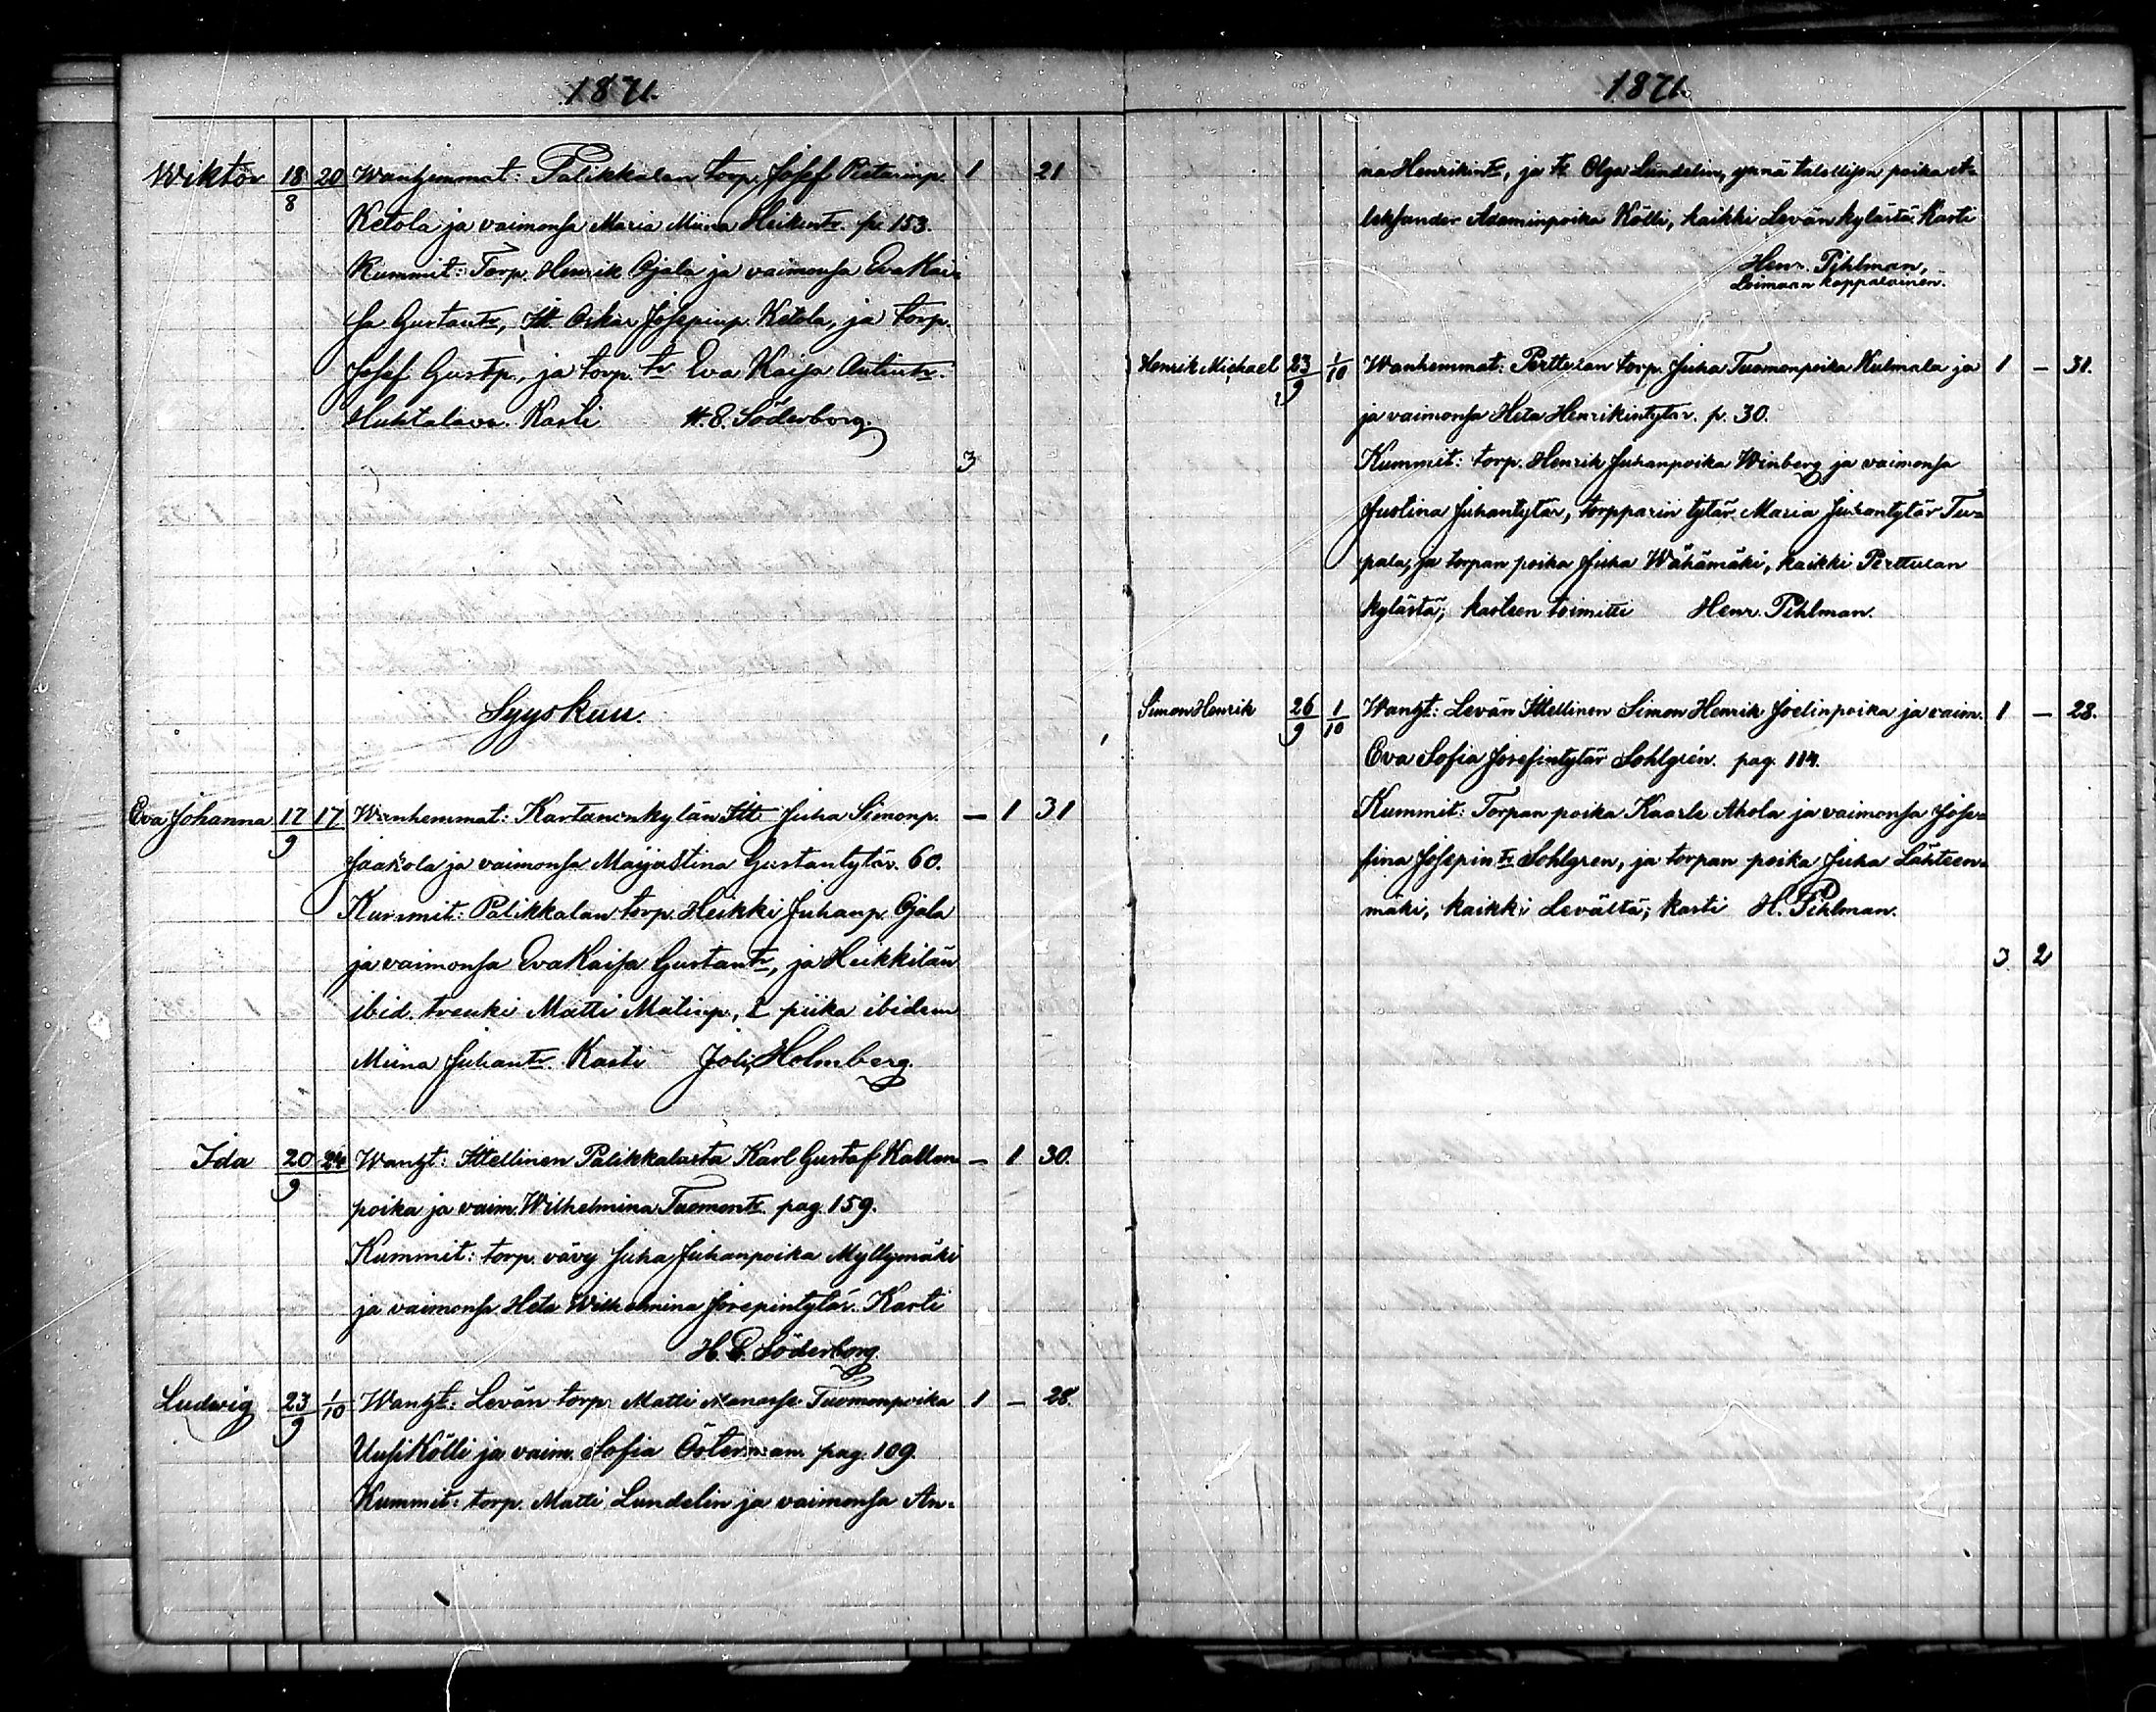 1871.
Wiktor 18/8 20 Wanhemmat: Palikkalan torp. Josef Pietarinp. 1 21
Ketola ja vaimonsa Maria Miina Heikintr. p. 153.
Kummit: Torp. Henrik Ojala ja vaimonsa Eva Kai=
sa Gustantr, Itt. Oskar Josepinp. Ketola, ja torp.
Josef Gustp., ja torp. tr Eva Kaisa Antintr.
Huhtalava. Kasti H. E. Söderborg.
3
Syyskuu.
Eva Johanna 17/9 17 Wanhemmat: Kartanonkylän Itt Juha Simonp. — 1 31
Jaakola ja vaimonsa Maija Stina Gustantytär. 60.
Kummit: Palikkalan torp. Heikki Juhanp. Ojala
ja vaimonsa Eva Kaisa Gustantr, ja Heikkilän
ibid. trenki Matti Matinp., & piika ibidem
Miina Juhantr. Kasti Joh. Holmberg.
Ida 20/9 24 Wanht: Ittellinen Palikkalasta Karl Gustaf Kallen — 1 30.
poika ja vaim. Wilhelmina Tuomontr. pag. 159.
Kummit: torp. vävy Juha Juhanpoika Myllymäki
ja vaimonsa Heta Wilhelmina Josepintytär. Kasti
H. E. Söderborg
Ludvig 23/9 1/10 Wanht: Levän torp. Matti Manasse Tuomonpoika 1 — 28.
Uusi Kölli ja vaim. Sofia Österman. pag. 109.
Kummit: torp. Matti Lundelin ja vaimonsa An=
1871.
na Henrikintr, ja tr Olga Lundelin, ynnä talollisen poika A=
leksander Adaminpoika Kölli, kaikki Levän kylästä. Kasti
Henr. Pihlman,
Loimaan kappalainen.
Henrik Michael 23/9 1/10 Wanhemmat: Perttulan torp. Juha Tuomonpoika Kulmala ja 1 — 31.
ja vaimonsa Heta Henrikintytär. p. 30.
Kummit: torp. Henrik Juhanpoika Winberg ja vaimonsa
Justina Juhantytär, torpparin tytär Maria Juhantytär Tu=
pala, ja torpan poika Juha Wähämäki, kaikki Perttulan
kylästä; kasteen toimitti Henr. Pihlman.
Simon Henrik 26/9 1/10 Wanht: Levän Ittellinen Simon Henrik Joelinpoika ja vaim. 1 — 28.
Eva Sofia Josefintytär Sohlgrén. pag. 114.
Kummit: Torpan poika Kaarle Ahola ja vaimonsa Jose=
fina Josepintr Sohlgren, ja torpan poika Juha Lähteen=
mäki, kaikki Levältä; kasti H. Pihlman.
3. 2